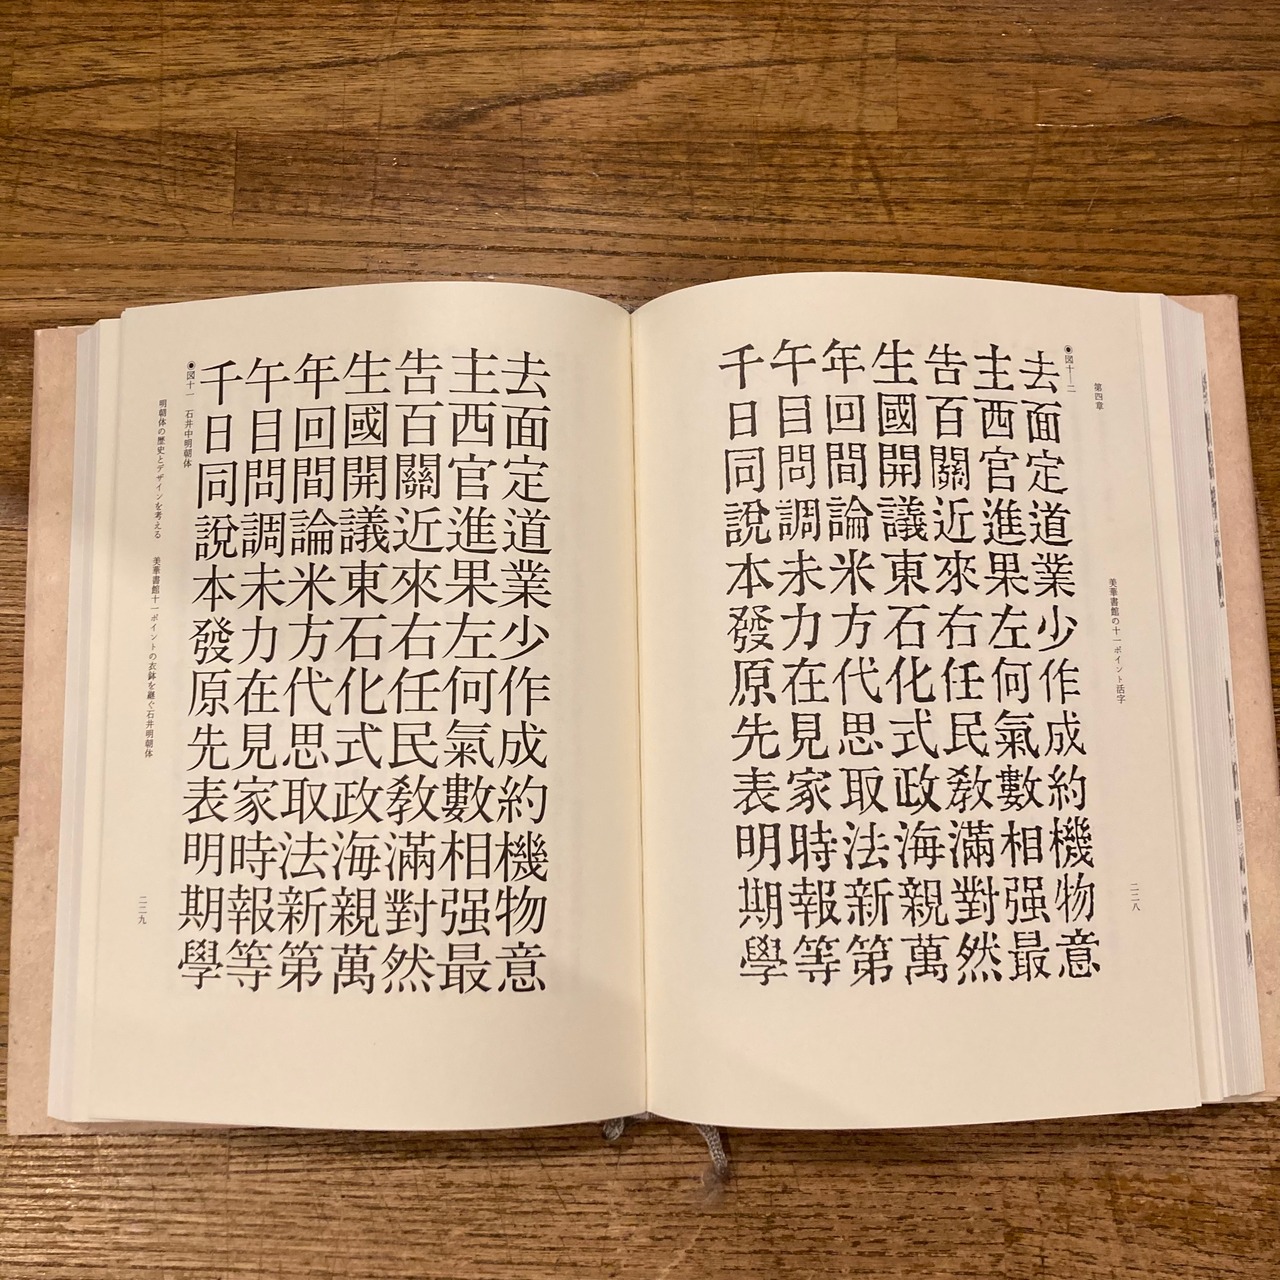 第四章
美華書館の十一ポイント活字
二二八
◉図十二
去面定道業少作成約機物意
主西官進果左何氣數相强最
告百關近來右任民敎滿對然
生國開議東石化式政海親萬
年回間論米方代思取法新第
午目問調未力在見家時報等
千日同說本發原先表明期學
去面定道業少作成約機物意
主西官進果左何氣數相强最
告百關近來右任民敎滿對然
生國開議東石化式政海親萬
年回間論米方代思取法新第
午目問調未力在見家時報等
千日同說本發原先表明期學
◉図十一 石井中明朝体
明朝体の歴史とデザインを考える 美華書館十一ポイントの衣鉢を継ぐ石井明朝体
二二九